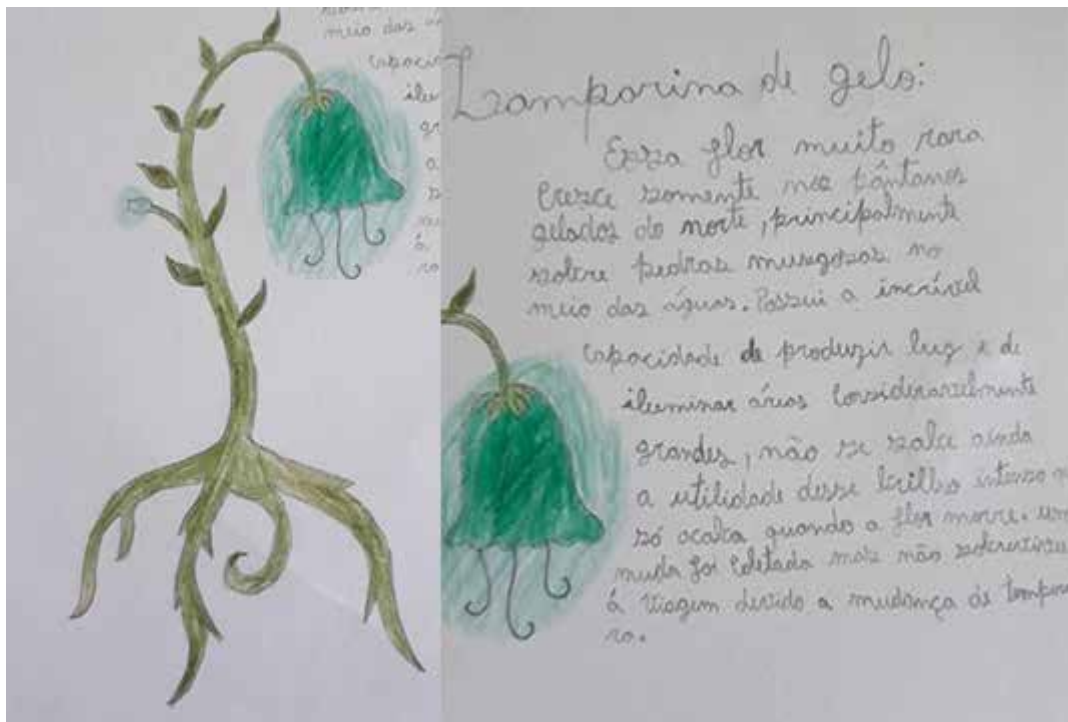 meio das
capaci
ilu
gr
a
Lamparina de gelo:
Essa flor muito rara
cresce somente nos pântanos
gelados do norte, principalmente
sobre pedras musgosas no
meio das águas. Possui a incrível
capacidade de produzir luz e de
iluminar áreas consideravelmente
grandes, não se sabe ainda
a utilidade desse brilho intenso
só acaba quando a flor morre. um
muda foi coletada mas não sobreviveu
á viagem devido a mudança de tempera